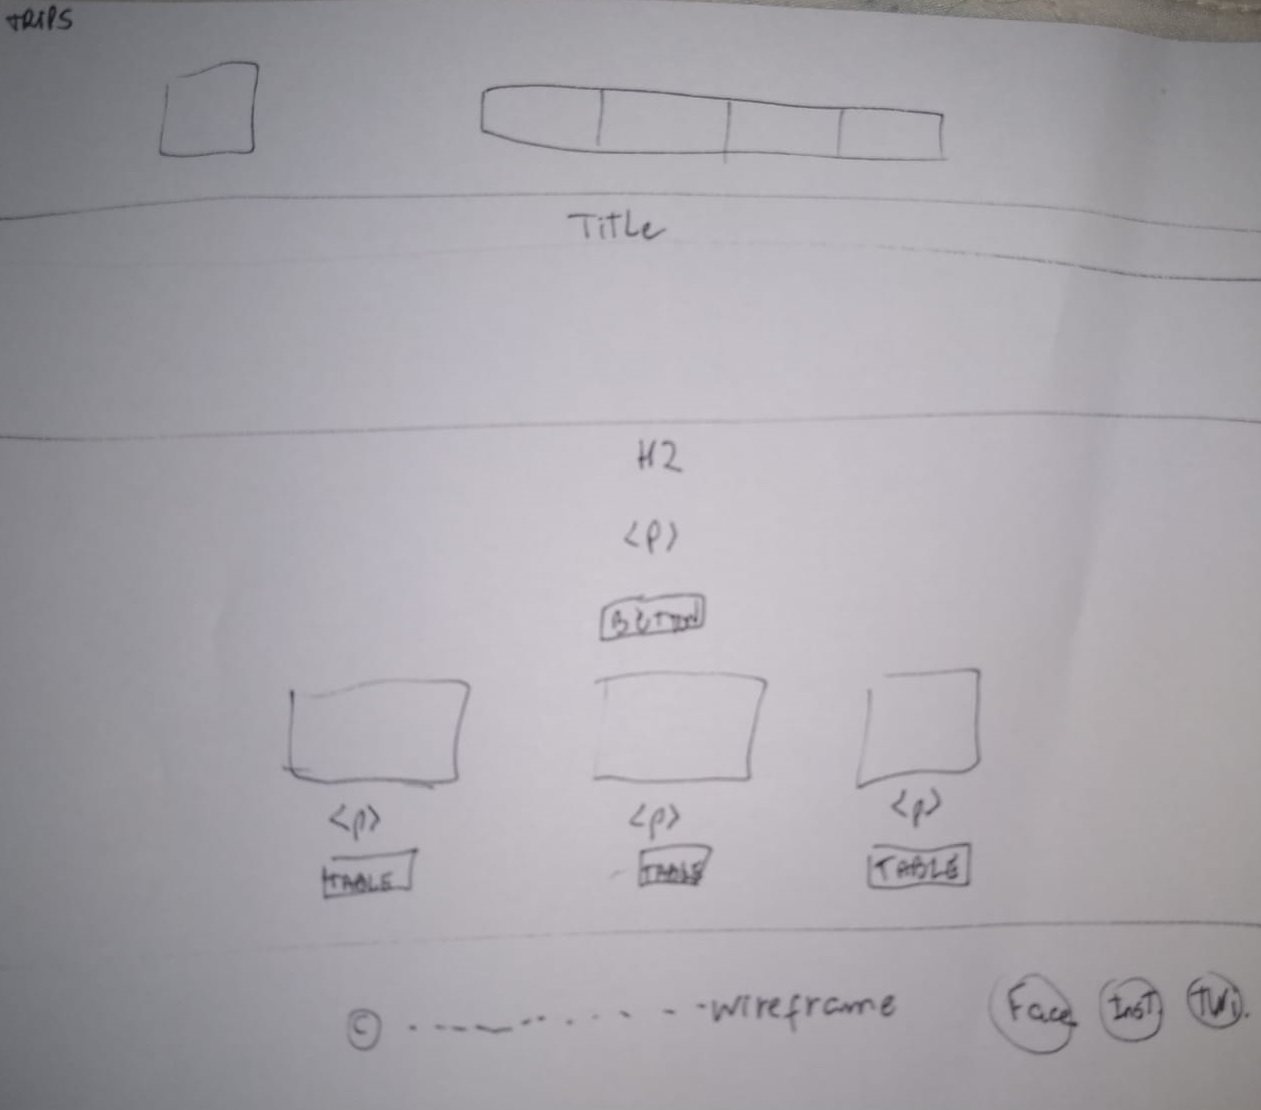 TRIPS
Title
H2
<P>
BUTTON
<p> <p> <p>
TABLE TABLE TABLE
© wireframe Face Inst Twi.